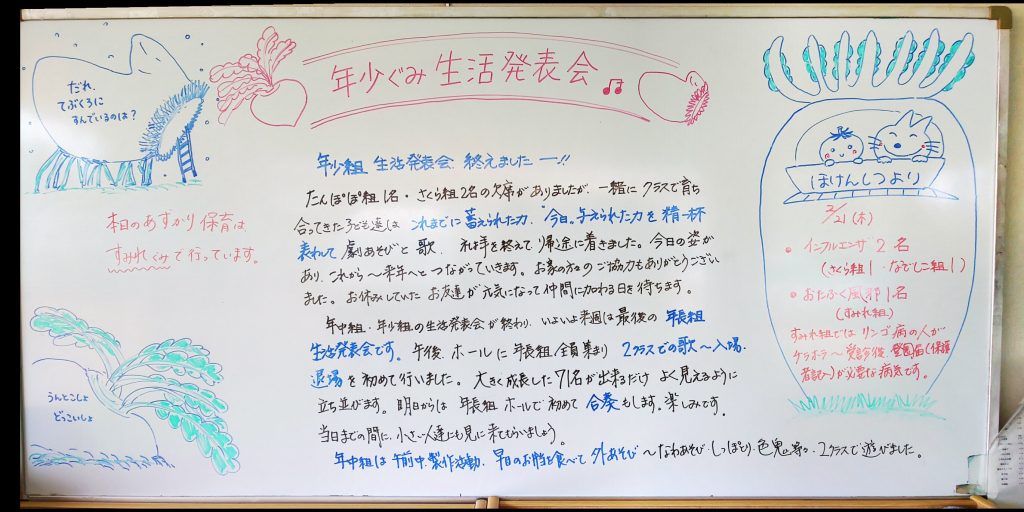 年少ぐみ 生活発表会
だれ、
てぶくろに
すんでいるのは？
本日のあずかり保育は
すみれぐみで行っています。
うんとこしょ
どっこいしょ
年少組 生活発表会 終えましたー!!
たんぽぽ組1名・さくら組2名の欠席がありましたが、一緒にクラスで育ち
合ってきた子ども達は これまでに蓄えられた力、今日。与えられた力を精一杯
表わして 劇あそびと歌 を終えて帰途に着きました。今日の姿が
あり、これから〜来年へと つながっていきます。お家の方々のご協力もありがとうござい
ました。お休みしていた お友達が元気になって仲間に加わる日を待ちます。
年中組・年少組の生活発表会が終わり、いよいよ来週は最後の 年長組
生活発表会です。午後、ホールに年長組全員集まり 2クラスでの歌〜入場、
退場を初めて行いました。大きく成長した71名が出来るだけ よく見えるように
立ち並びます。明日からは 年長組 ホールで初めて 合奏もします。楽しみです。
当日までの間に、小さい人達にも見に来てもらいましょう。
年中組は 午前中、製作活動、早目のお弁当を食べて 外あそび 〜なわあそび・しっぽとり、色鬼等々・2クラスで遊びました。
ほけんしつより
2/21(木)
• インフルエンザ 2名
(さくら組1・なでしこ組1)
• おたふく風邪1名
(すみれ組)
すみれ組では リンゴ病の人が
チラホラ〜受診後、登園届(保護
者記入)が必要な病気です。